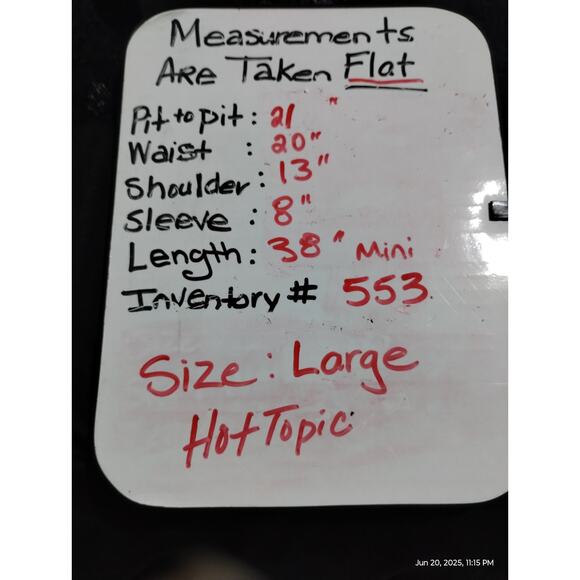 Measurements
Are Taken Flat
Pit to pit: 21"
Waist : 20"
Shoulder: 13"
Sleeve : 8"
Length: 38" Mini
Inventory # 553
Size: Large
Hot Topic
Jun 20, 2025, 11:15 PM